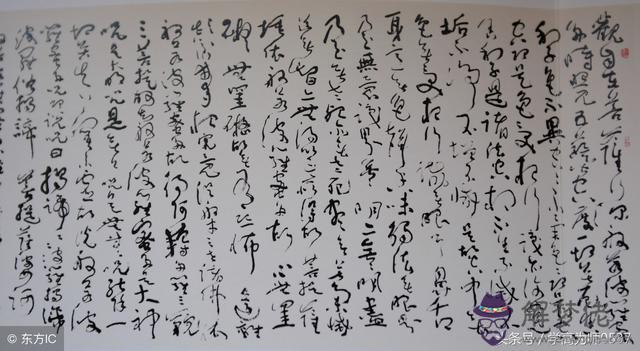 觀自在菩薩行深般若波羅蜜多
時照見五蘊皆空度一切苦厄
舍利子色不異空空不異色色即是
空空即是色受想行識亦復如是
舍利子是諸法空相不生不滅不
垢不淨不增不減是故空中無
色無受想行識無眼耳鼻舌
身意無色聲香味觸法無眼界
乃至無意識界無無明亦無無明盡
乃至無老死亦無老死盡無苦集滅
道無智亦無得以無所得故菩提薩
埵依般若波羅蜜多故心無罣
礙無罣礙故無有恐怖遠離
顛倒夢想究竟涅槃三世諸佛依
般若波羅蜜多故得阿耨多羅三藐
三菩提故知般若波羅蜜多是大神
咒是大明咒是無上咒是無等等咒能除一
切苦真實不虛故說般若波
羅蜜多咒即說咒曰揭諦揭諦波羅揭諦
波羅僧揭諦 菩提薩婆訶
© 东方IC
解梦佬
头条号/学高为师0527